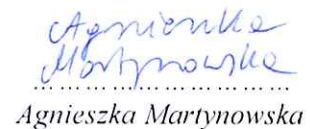 Agnieszka
Martynowska
........................
Agnieszka Martynowska